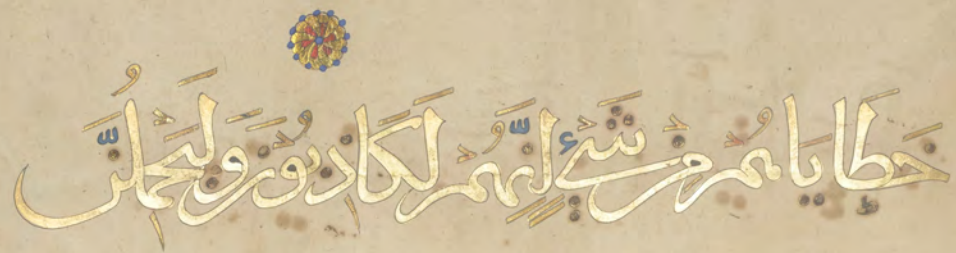 خَطَايَاهُمْ مِنْ شَيْءٍ إِنَّهُمْ لَكَاذِبُونَ وَلَيَحْمِلُنَّ